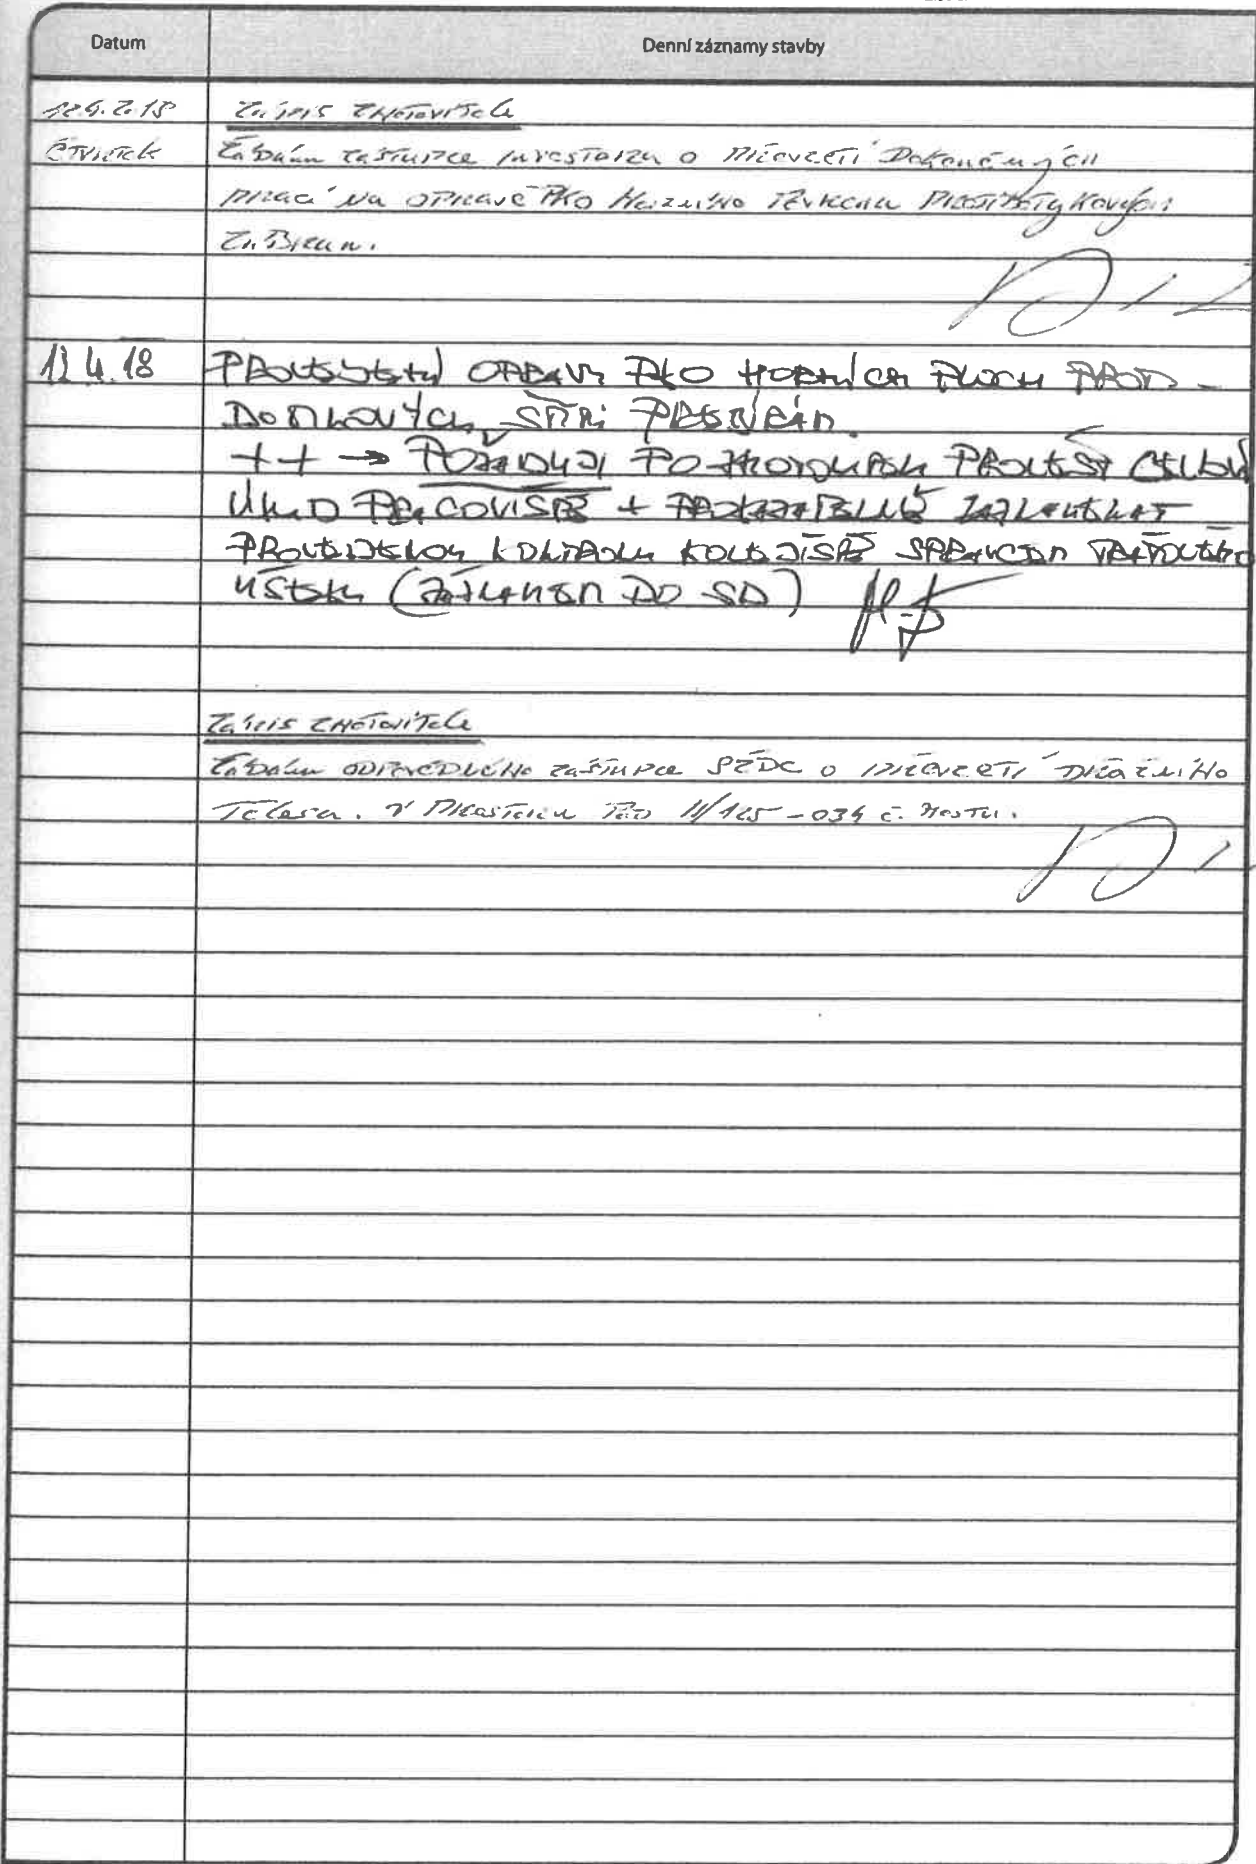 Datum
Denní záznamy stavby
12.4.2018 Zápis zhotovitele
čtvrtek Žádám zástupce investora o převzetí dokončených
prací na opravě PKO horního povrchu protidotykových
zábran.
12.4.18 PROVEDENÍ OPRAVY PKO HORNÍCH PLOCH PROTI-
DOTYKOVÝCH SÍTÍ PŘEBÍRÁM.
++ → POŽADUJI PO ZHOTOVITELI PROVÉST CELKOVÝ
ÚKLID PRACOVIŠTĚ + PROKAZATELNĚ
PROVEDENOU KONTROLU KOLEJIŠTĚ SPRÁVCEM TRAŤOVÉHO
ÚSEKU (ZÁZNAM DO SD)
Zápis zhotovitele
Žádám odpovědného zástupce SŽDC o převzetí drážního
tělesa. V prostoru pod II/125-034 č. mostu.